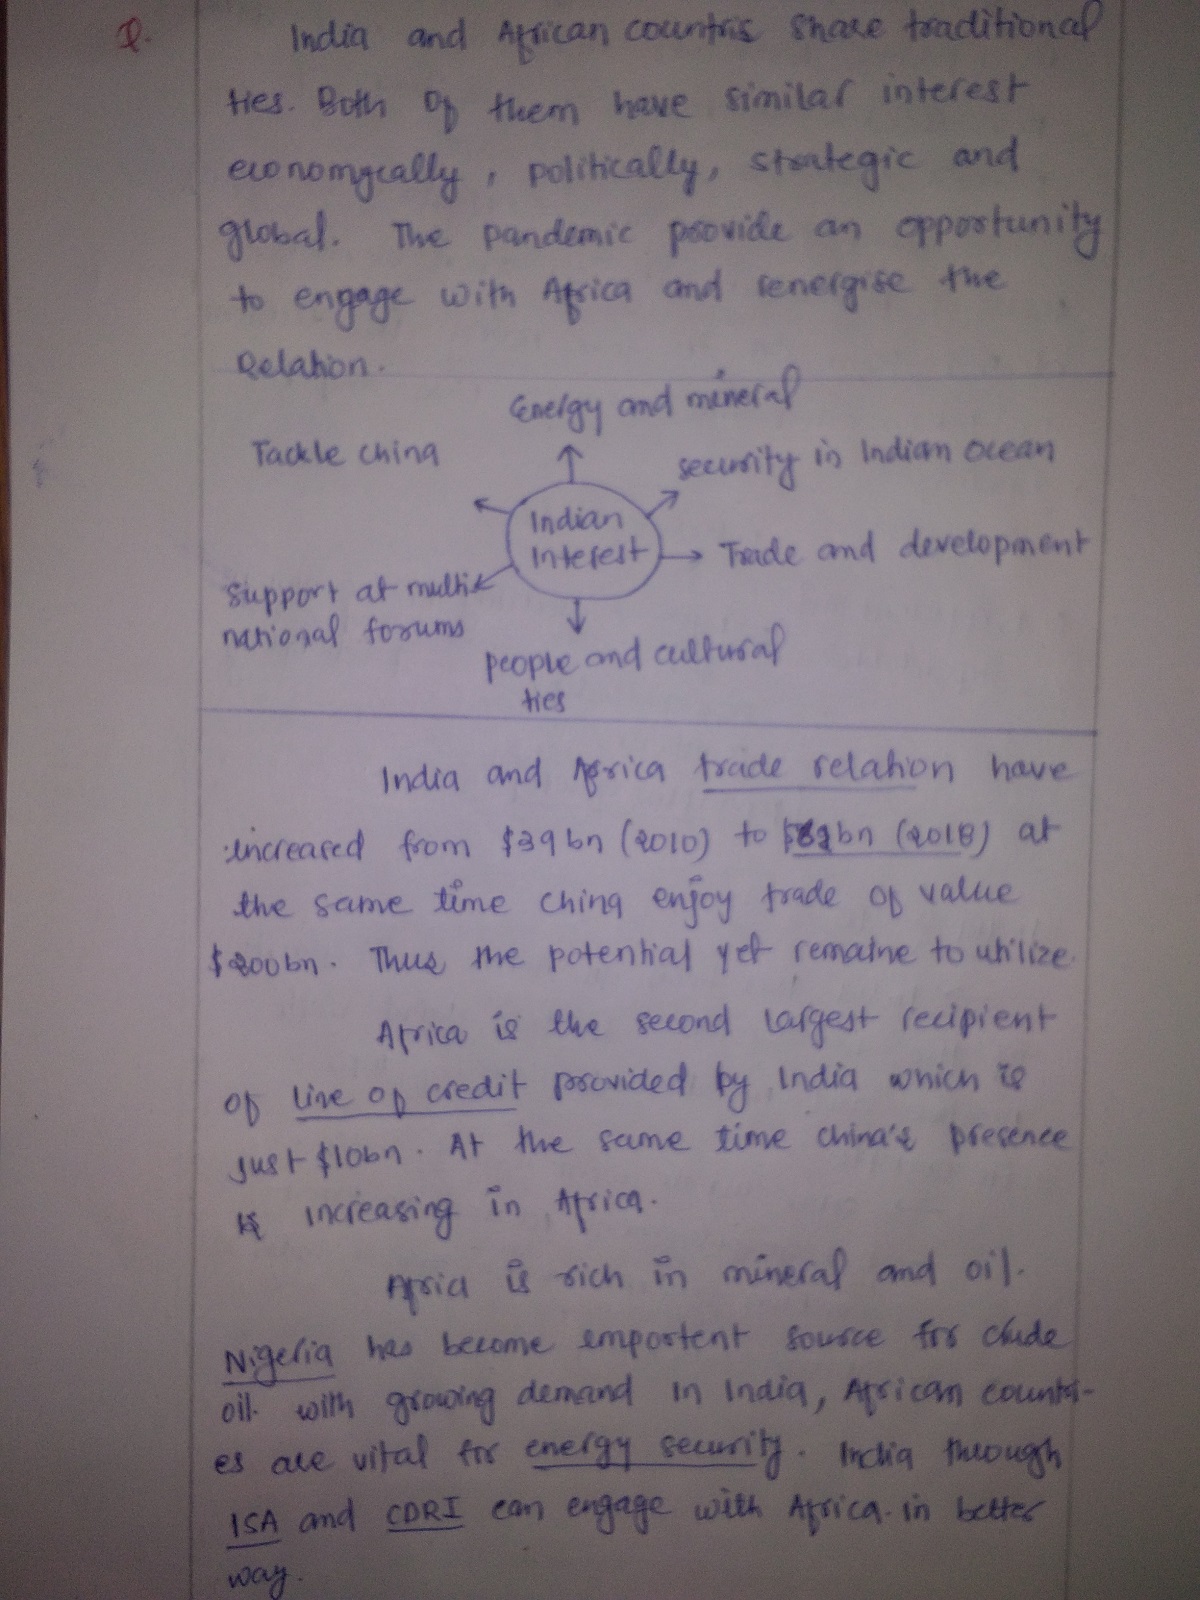 Q.
India and African countris share traditional
ties. Both of them have similar interest
economycally, politically, strategic and
global. The pandemic provide an opportunity
to engage with Africa and renergise the
Relation.
Energy and mineral
Tackle china
security in Indian ocean
Indian
Interest
Trade and development
support at multi
national forums
people and cultural
ties
India and Africa trade relation have
increased from $39bn (2010) to bn (2018) at
the same time china enjoy trade of value
$200bn. Thus the potential yet remaine to utilize
Africa is the second largest recipient
of line of credit provided by India which is
just $10bn. At the same time china's presence
is increasing in Africa.
Africa is rich in mineral and oil.
Nigeria has become emportent source for crude
oil. with growing demand in India, African countri-
es are vital for energy security. India through
ISA and CDRI can engage with Africa. in better
way.